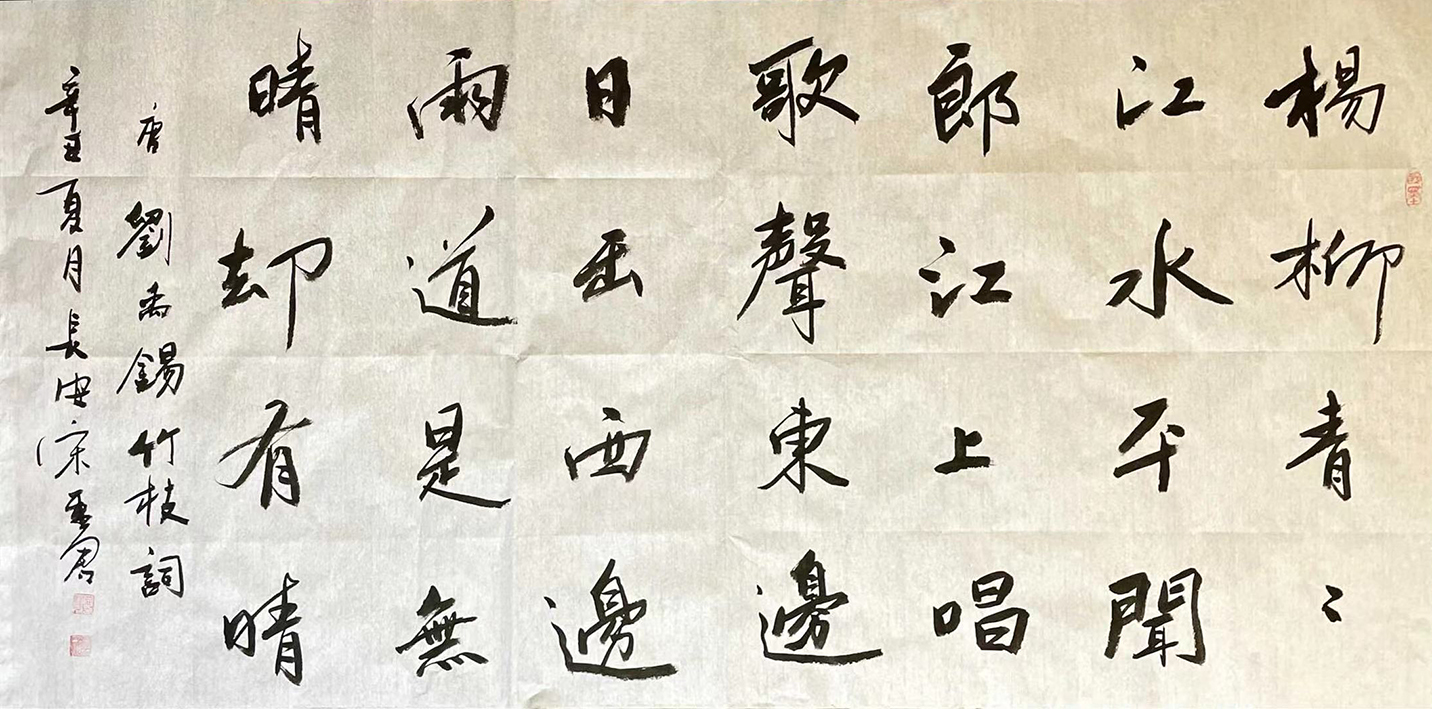 楊柳青〻
江水平聞
郎江上唱
歌聲東邊
日出西邊
雨道是無
晴却有晴
唐劉禹錫竹枝詞
辛丑夏月長安宋